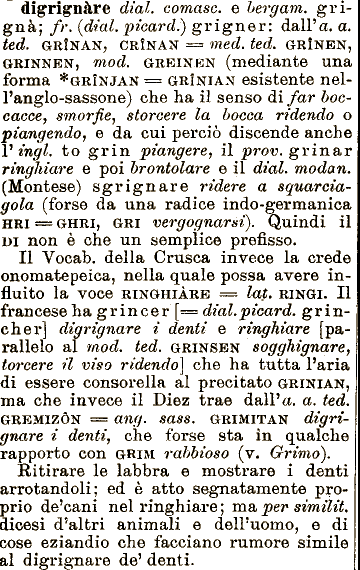 digrignàre dial. comasc. e bergam. gri-
gnà; fr. (dial. picard.) grigner: dall'a. a.
ted. GRÎNAN, CRÎNAN = med. ted. GRÎNEN,
GRINNEN, mod. GREINEN (mediante una
forma *GRÎNJAN = GRÎNIAN esistente nel-
l'anglo-sassone) che ha il senso di far boc-
cacce, smorfie, storcere la bocca ridendo o
piangendo, e da cui perciò discende anche
l' ingl. to grin piangere, il prov. grinar
ringhiare e poi brontolare e il dial. modan.
(Montese) sgrignare ridere a squarcia-
gola (forse da una radice indo-germanica
HRI = GHRI, GRI vergognarsi). Quindi il
DI non è che un semplice prefisso.
Il Vocab. della Crusca invece la crede
onomatepeica, nella quale possa avere in-
fluito la voce RINGHIÀRE = lat. RINGI. Il
francese ha grincer [= dial. picard. grin-
cher] digrignare i denti e ringhiare [pa-
rallelo al mod. ted. GRINSEN sogghignare,
torcere il viso ridendo] che ha tutta l'aria
di essere consorella al precitato GRINIAN,
ma che invece il Diez trae dall'a. a. ted.
GREMIZÔN = ang. sass. GRIMITAN digri-
gnare i denti, che forse sta in qualche
rapporto con GRIM rabbioso (v. Grimo).
Ritirare le labbra e mostrare i denti
arrotandoli; ed è atto segnatamente pro-
prio de'cani nel ringhiare; ma per similit.
dicesi d'altri animali e dell'uomo, e di
cose eziandio che facciano rumore simile
al digrignare de' denti.